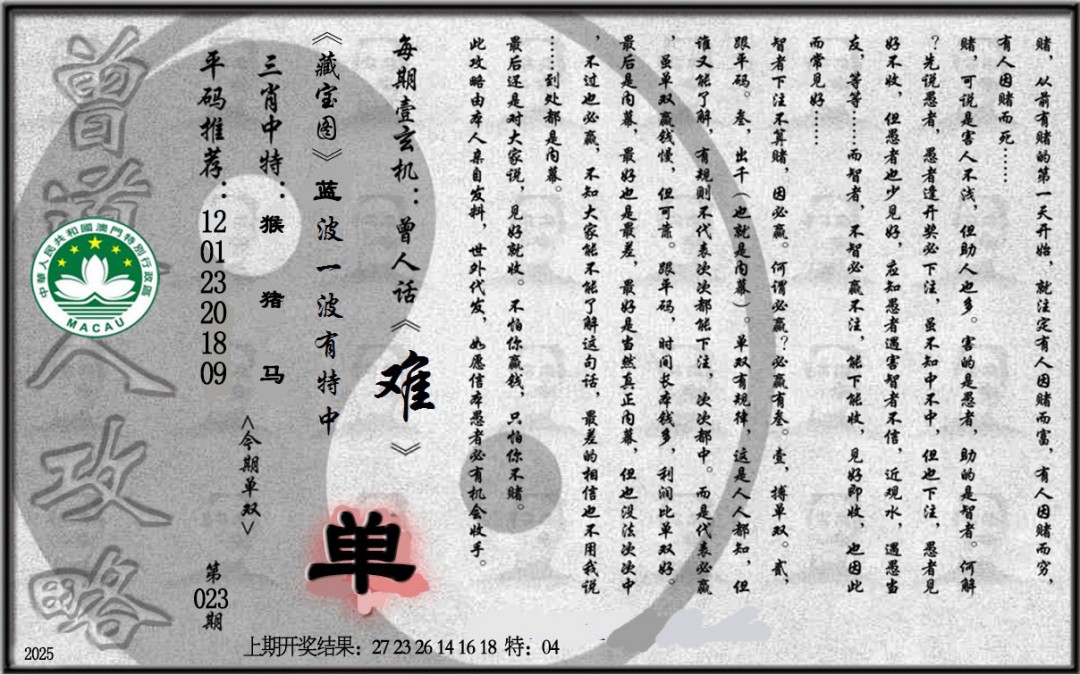 赌，从前有赌的第一天开始，就注定有人因赌而富，有人因赌而穷，
有人因赌而死……
赌，可说是害人不浅，但助人也多。害的是愚者，助的是智者。何解
？先说愚者，愚者逢开奖必下注，虽不知中不中，但也下注，愚者见
好不收，但愚者也少见好，应知愚者遇害智者不信，近观水，遇愚当
友，等等……而智者，不智必赢不注，能下能收，见好即收，也因此
而常见好……
智者下注不算赌，因必赢。何谓必赢？必赢有叁。壹，搏单双。贰，
跟平码。叁，出千（也就是内幕）。单双有规律，这是人人都知，但
谁又能了解，有规则不代表次次都能下注，次次都中。而是代表必赢
，虽单双赢钱慢，但可靠。跟平码，时间长本钱多，利润比单双好。
最后是内幕，最好也是最差，最好是当然真正内幕，但也没法次次中
，不过也必赢，不知大家能不能了解这句话，最差的相信也不用我说
……到处都是内幕。
最后还是对大家说，见好就收。不怕你赢钱，只怕你不赌。
此攻略由本人亲自发料，世外代发，如愿信本愚者必有机会收手。
每期壹玄机：曾人话《难》
《藏宝图》蓝波一波有特中
三肖中特：猴 猪 马
平码推荐：12 01 23 20 18 09
<今期单双>
单
第023期
曾道人攻略
中華人民共和國澳門特別行政區
MACAU
上期开奖结果：27 23 26 14 16 18 特：04
2025